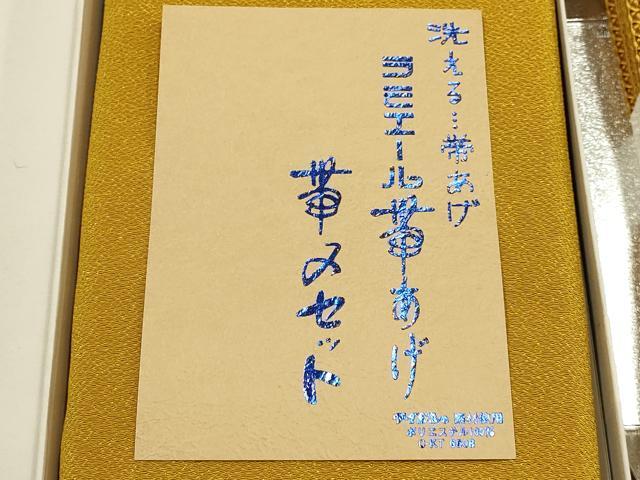 洗える…帯あげ
ラミエール帯あげ
帯〆セット
ポリエステル100%